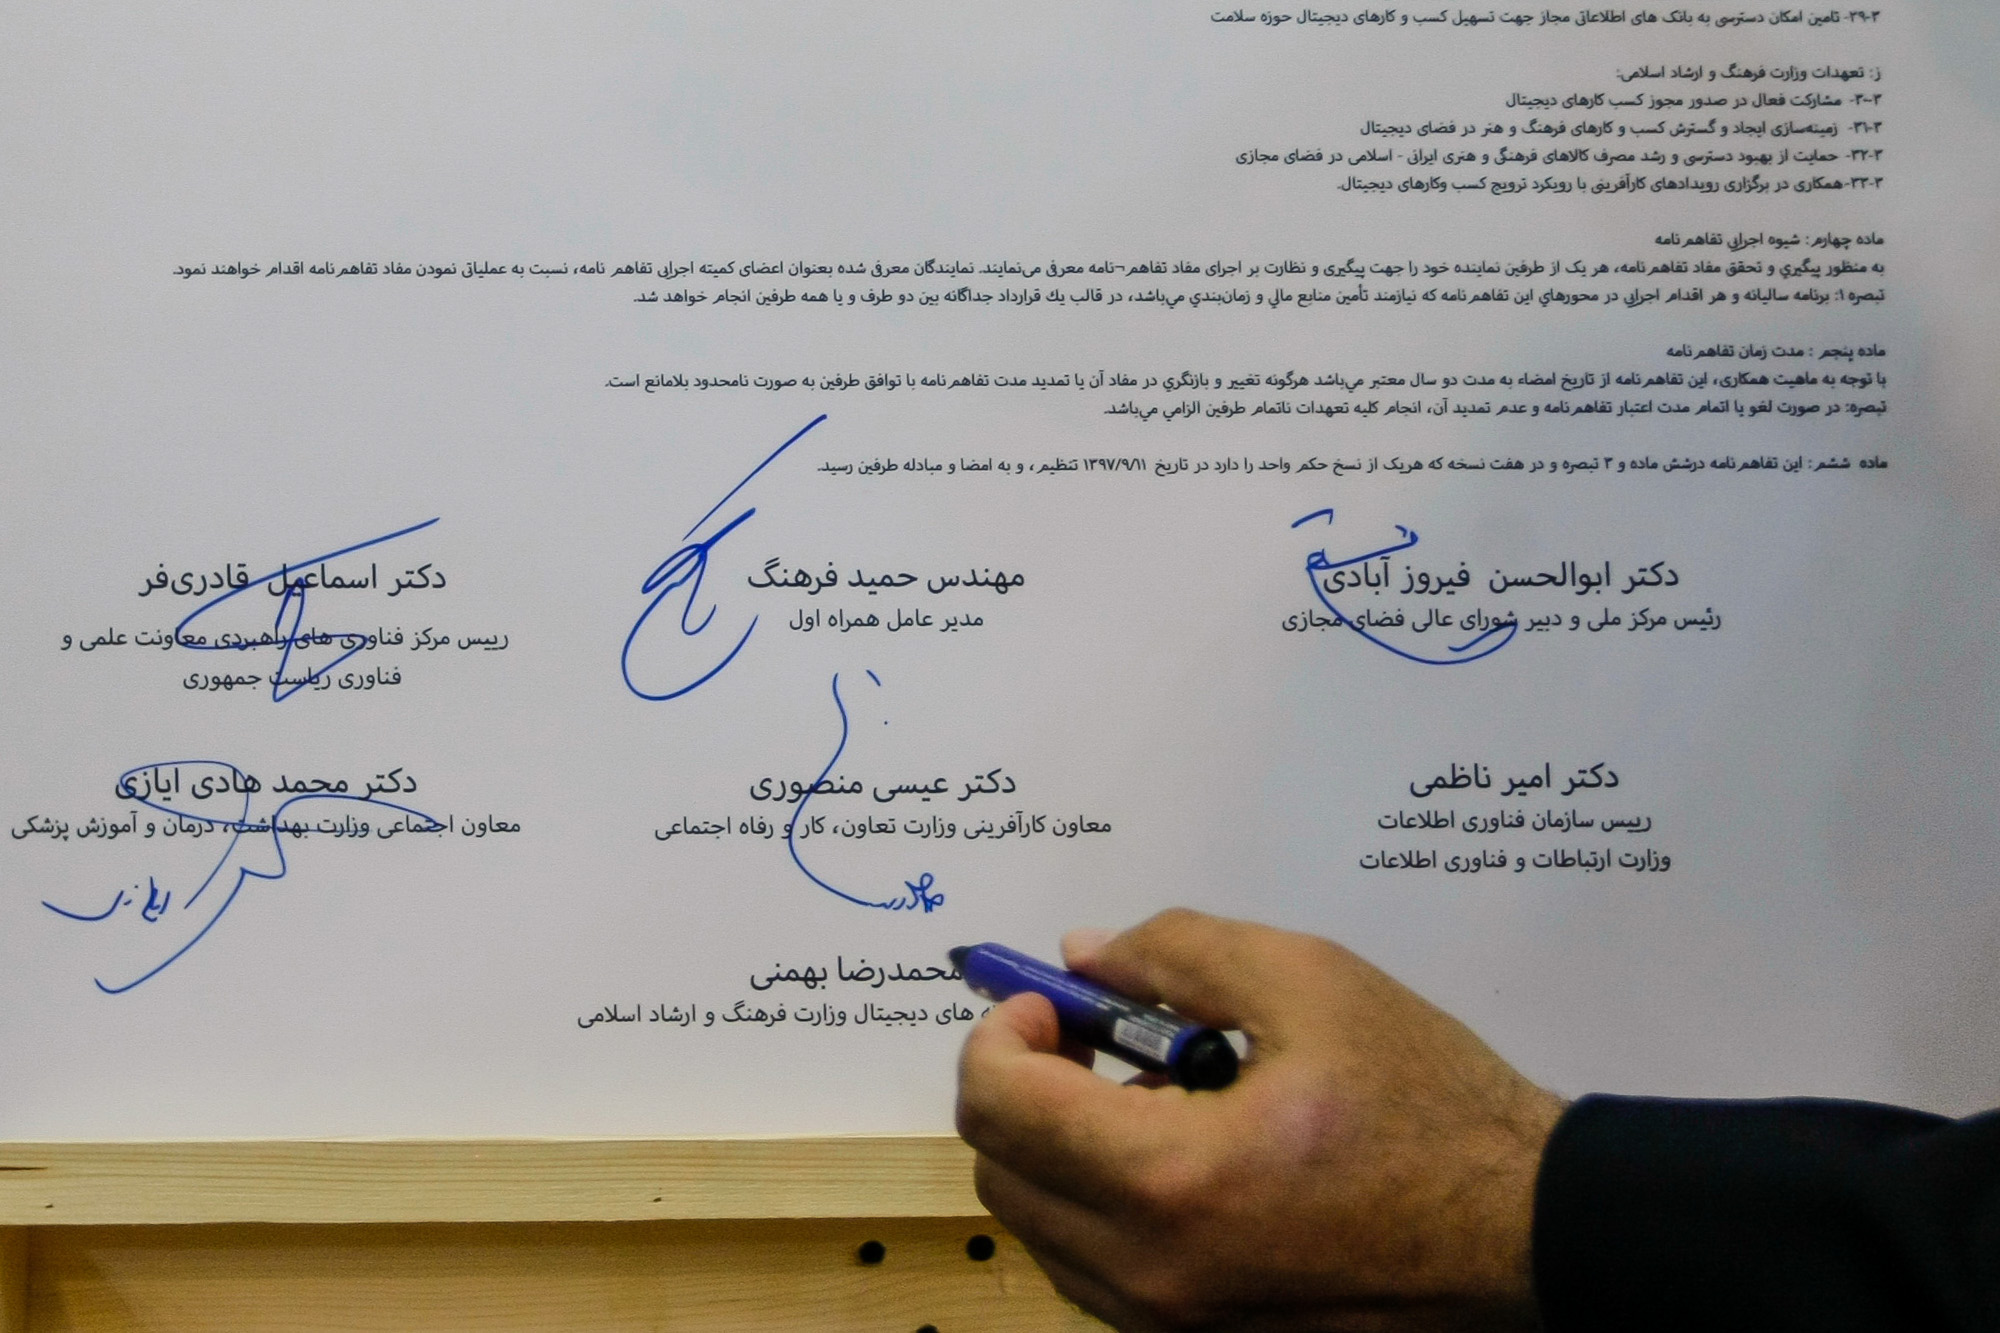 ۲۹-۳- تامین امکان دسترسی به بانک های اطلاعاتی مجاز جهت تسهیل کسب و کارهای دیجیتال حوزه سلامت
ز: تعهدات وزارت فرهنگ و ارشاد اسلامی:
۳-۳۰- مشارکت فعال در صدور مجوز کسب کارهای دیجیتال
۳۱-۳- زمینه‌سازی ایجاد و گسترش کسب و کارهای فرهنگ و هنر در فضای دیجیتال
۳۲-۳- حمایت از بهبود دسترسی و رشد مصرف کالاهای فرهنگی و هنری ایرانی - اسلامی در فضای مجازی
۳۳-۳-همکاری در برگزاری رویدادهای کارآفرینی با رویکرد ترویج کسب وکارهای دیجیتال.
ماده چهارم: شیوه اجرایی تفاهم‌نامه
به منظور پیگيري و تحقق مفاد تفاهم‌نامه، هر یک از طرفین نماینده خود را جهت پیگیری و نظارت بر اجرای مفاد تفاهم¬نامه معرفی می‌نمایند. نمایندگان معرفی شده بعنوان اعضای کمیته اجرایی تفاهم نامه، نسبت به عملیاتی نمودن مفاد تفاهم‌نامه اقدام خواهند نمود.
تبصره ۱: برنامه سالیانه و هر اقدام اجرایی در محورهاي این تفاهم‌نامه که نیازمند تأمین منابع مالي و زمان‌بندي مي‌باشد، در قالب يك قرارداد جداگانه بین دو طرف و یا همه طرفین انجام خواهد شد.
ماده پنجم : مدت زمان تفاهم‌نامه
با توجه به ماهیت همکاری، این تفاهم‌نامه از تاریخ امضاء به مدت دو سال معتبر مي‌باشد هرگونه تغییر و بازنگري در مفاد آن یا تمدید مدت تفاهم‌نامه با توافق طرفین به صورت نامحدود بلامانع است.
تبصره: در صورت لغو یا اتمام مدت اعتبار تفاهم‌نامه و عدم تمدید آن، انجام کلیه تعهدات ناتمام طرفین الزامي مي‌باشد.
ماده ششم: این تفاهم‌نامه درشش ماده و ۳ تبصره و در هفت نسخه که هریک از نسخ حکم واحد را دارد در تاریخ ۱۳۹۷/۹/۱۱ تنظیم، و به امضا و مبادله طرفین رسید.
دکتر ابوالحسن فیروز آبادی
رئیس مرکز ملی و دبیر شورای عالی فضای مجازی
مهندس حمید فرهنگ
مدیر عامل همراه اول
دکتر اسماعیل قادری‌فر
رییس مرکز فناوری های راهبردی معاونت علمی و
فناوری ریاست جمهوری
دکتر امیر ناظمی
رییس سازمان فناوری اطلاعات
وزارت ارتباطات و فناوری اطلاعات
دکتر عیسی منصوری
معاون کارآفرینی وزارت تعاون، کار و رفاه اجتماعی
دکتر محمد هادی ایازی
معاون اجتماعی وزارت بهداشت، درمان و آموزش پزشکی
محمدرضا بهمنی
های دیجیتال وزارت فرهنگ و ارشاد اسلامی